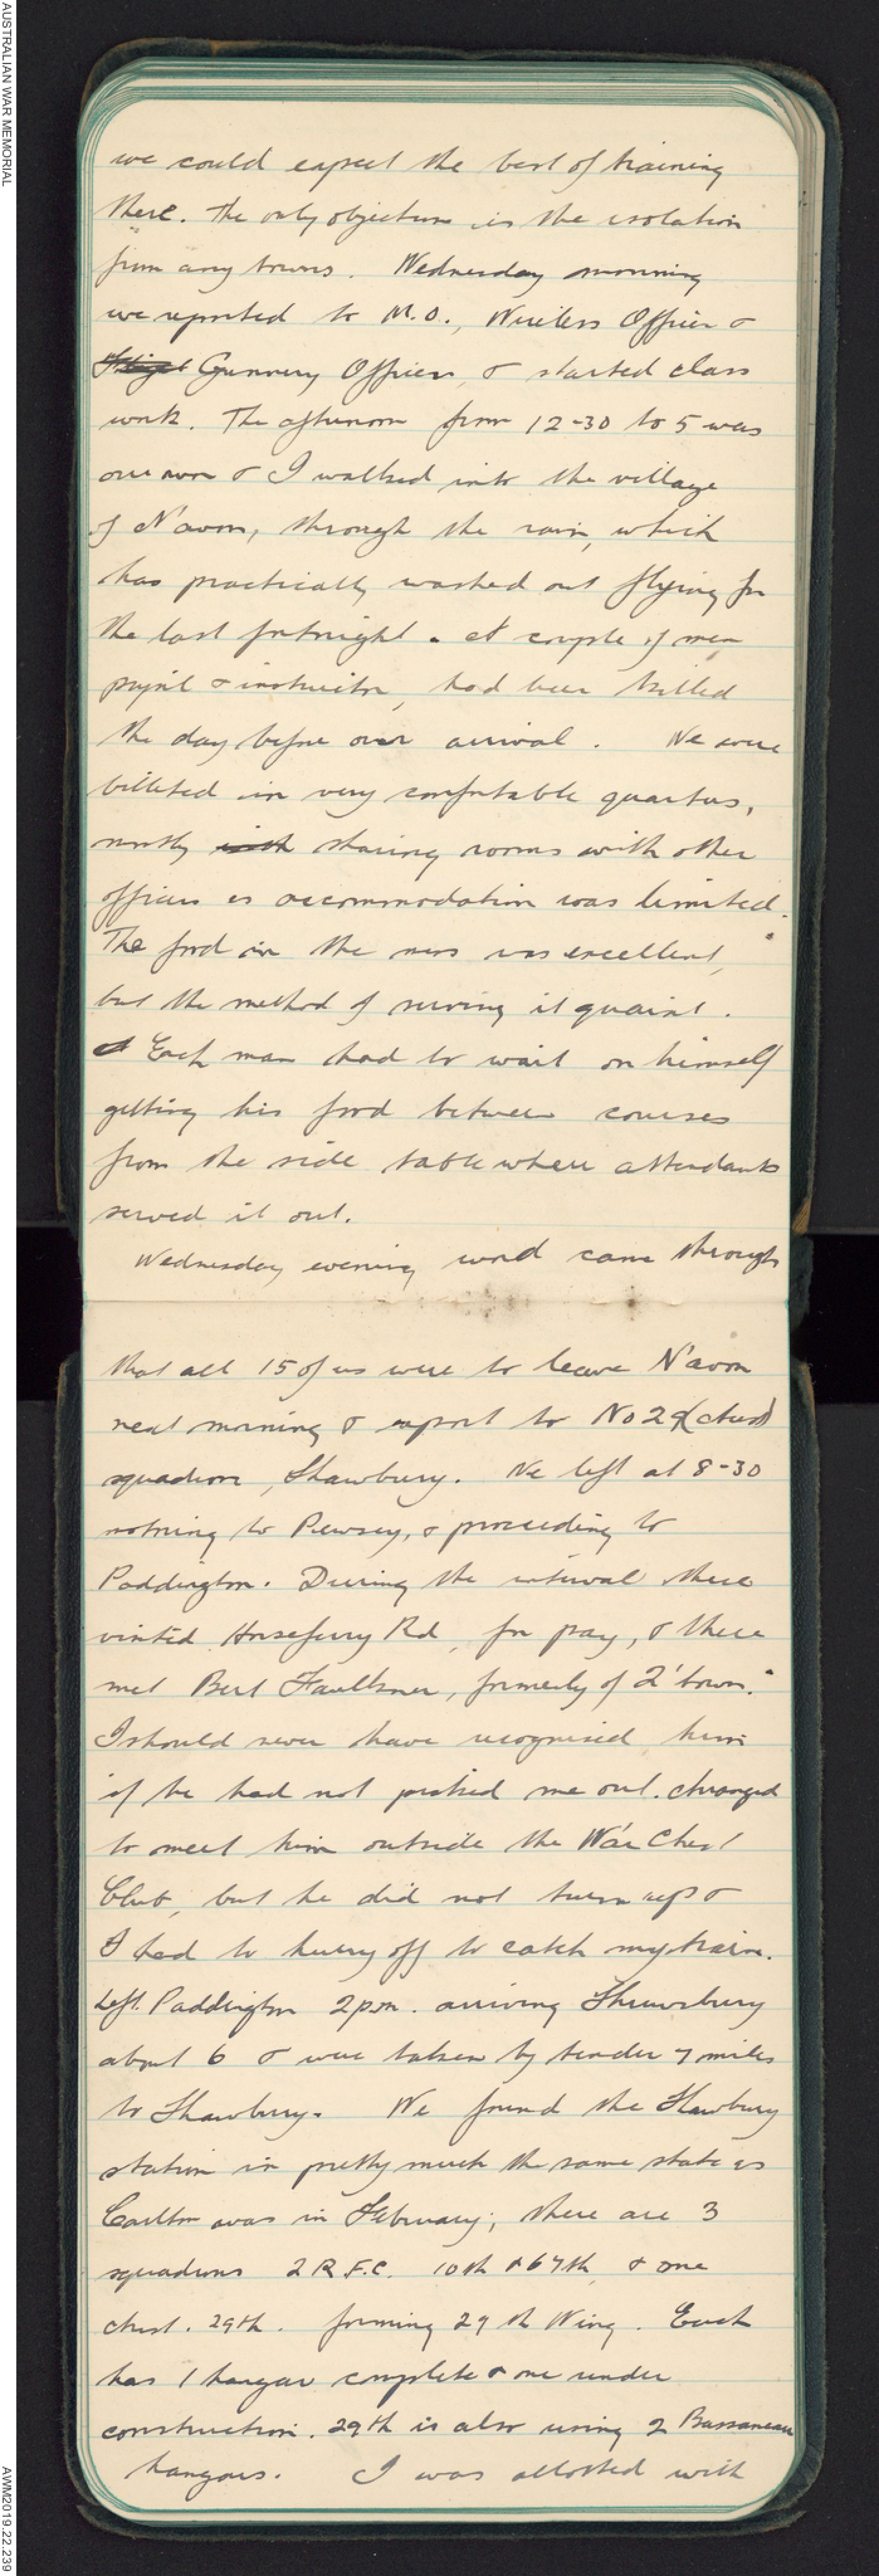 AUSTRALIAN WAR MEMORIAL
we could expect the best of training
there. The only objection is the isolation
from any towns. Wednesday morning
we reported to M.O., Wireless Officer &
Gunnery Officer, & started class
work. The afternoon from 12-30 to 5 was
our own & I walked into the village
of N'avon, through the rain, which
has practically washed out flying for
the last fortnight. A couple of men
pupil & instructor, had been killed
the day before our arrival. We were
billeted in very comfortable quarters,
mostly with sharing rooms with other
officers as accommodation was limited.
The food in the mess was excellent,
but the method of serving it quaint.
Each man had to wait on himself
getting his food between courses
from the side table where attendants
served it out.
Wednesday evening word came through
that all 15 of us were to leave N'avon
next morning & report to No 29 (Aust)
squadron, Shawbury. We left at 8-30
motoring to Pewsey, & proceeding to
Paddington. During the interval there
visited Horseferry Rd, for pay, & there
met Bert Faulkner, formerly of Q'town.
I should never have recognised him
if he had not picked me out. Arranged
to meet him outside the War Chest
Club, but he did not turn up &
I had to hurry off to catch my train.
Left Paddington 2 p.m. arriving Shrewsbury
about 6 & were taken by tender 7 miles
to Shawbury. We found the Shawbury
station in pretty much the same state as
Carlton was in February; there are 3
squadrons 2 R.F.C. 10th & 67th, & one
Aust. 29th. forming 29th Wing. Each
has 1 hangar complete & one under
construction. 29th is also using 2 Bassaneau
hangars. I was allotted with
AWM2019.22.239